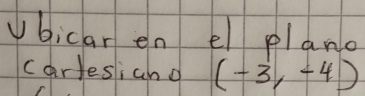 Ubicar en el plano
cartesiano (-3, -4)